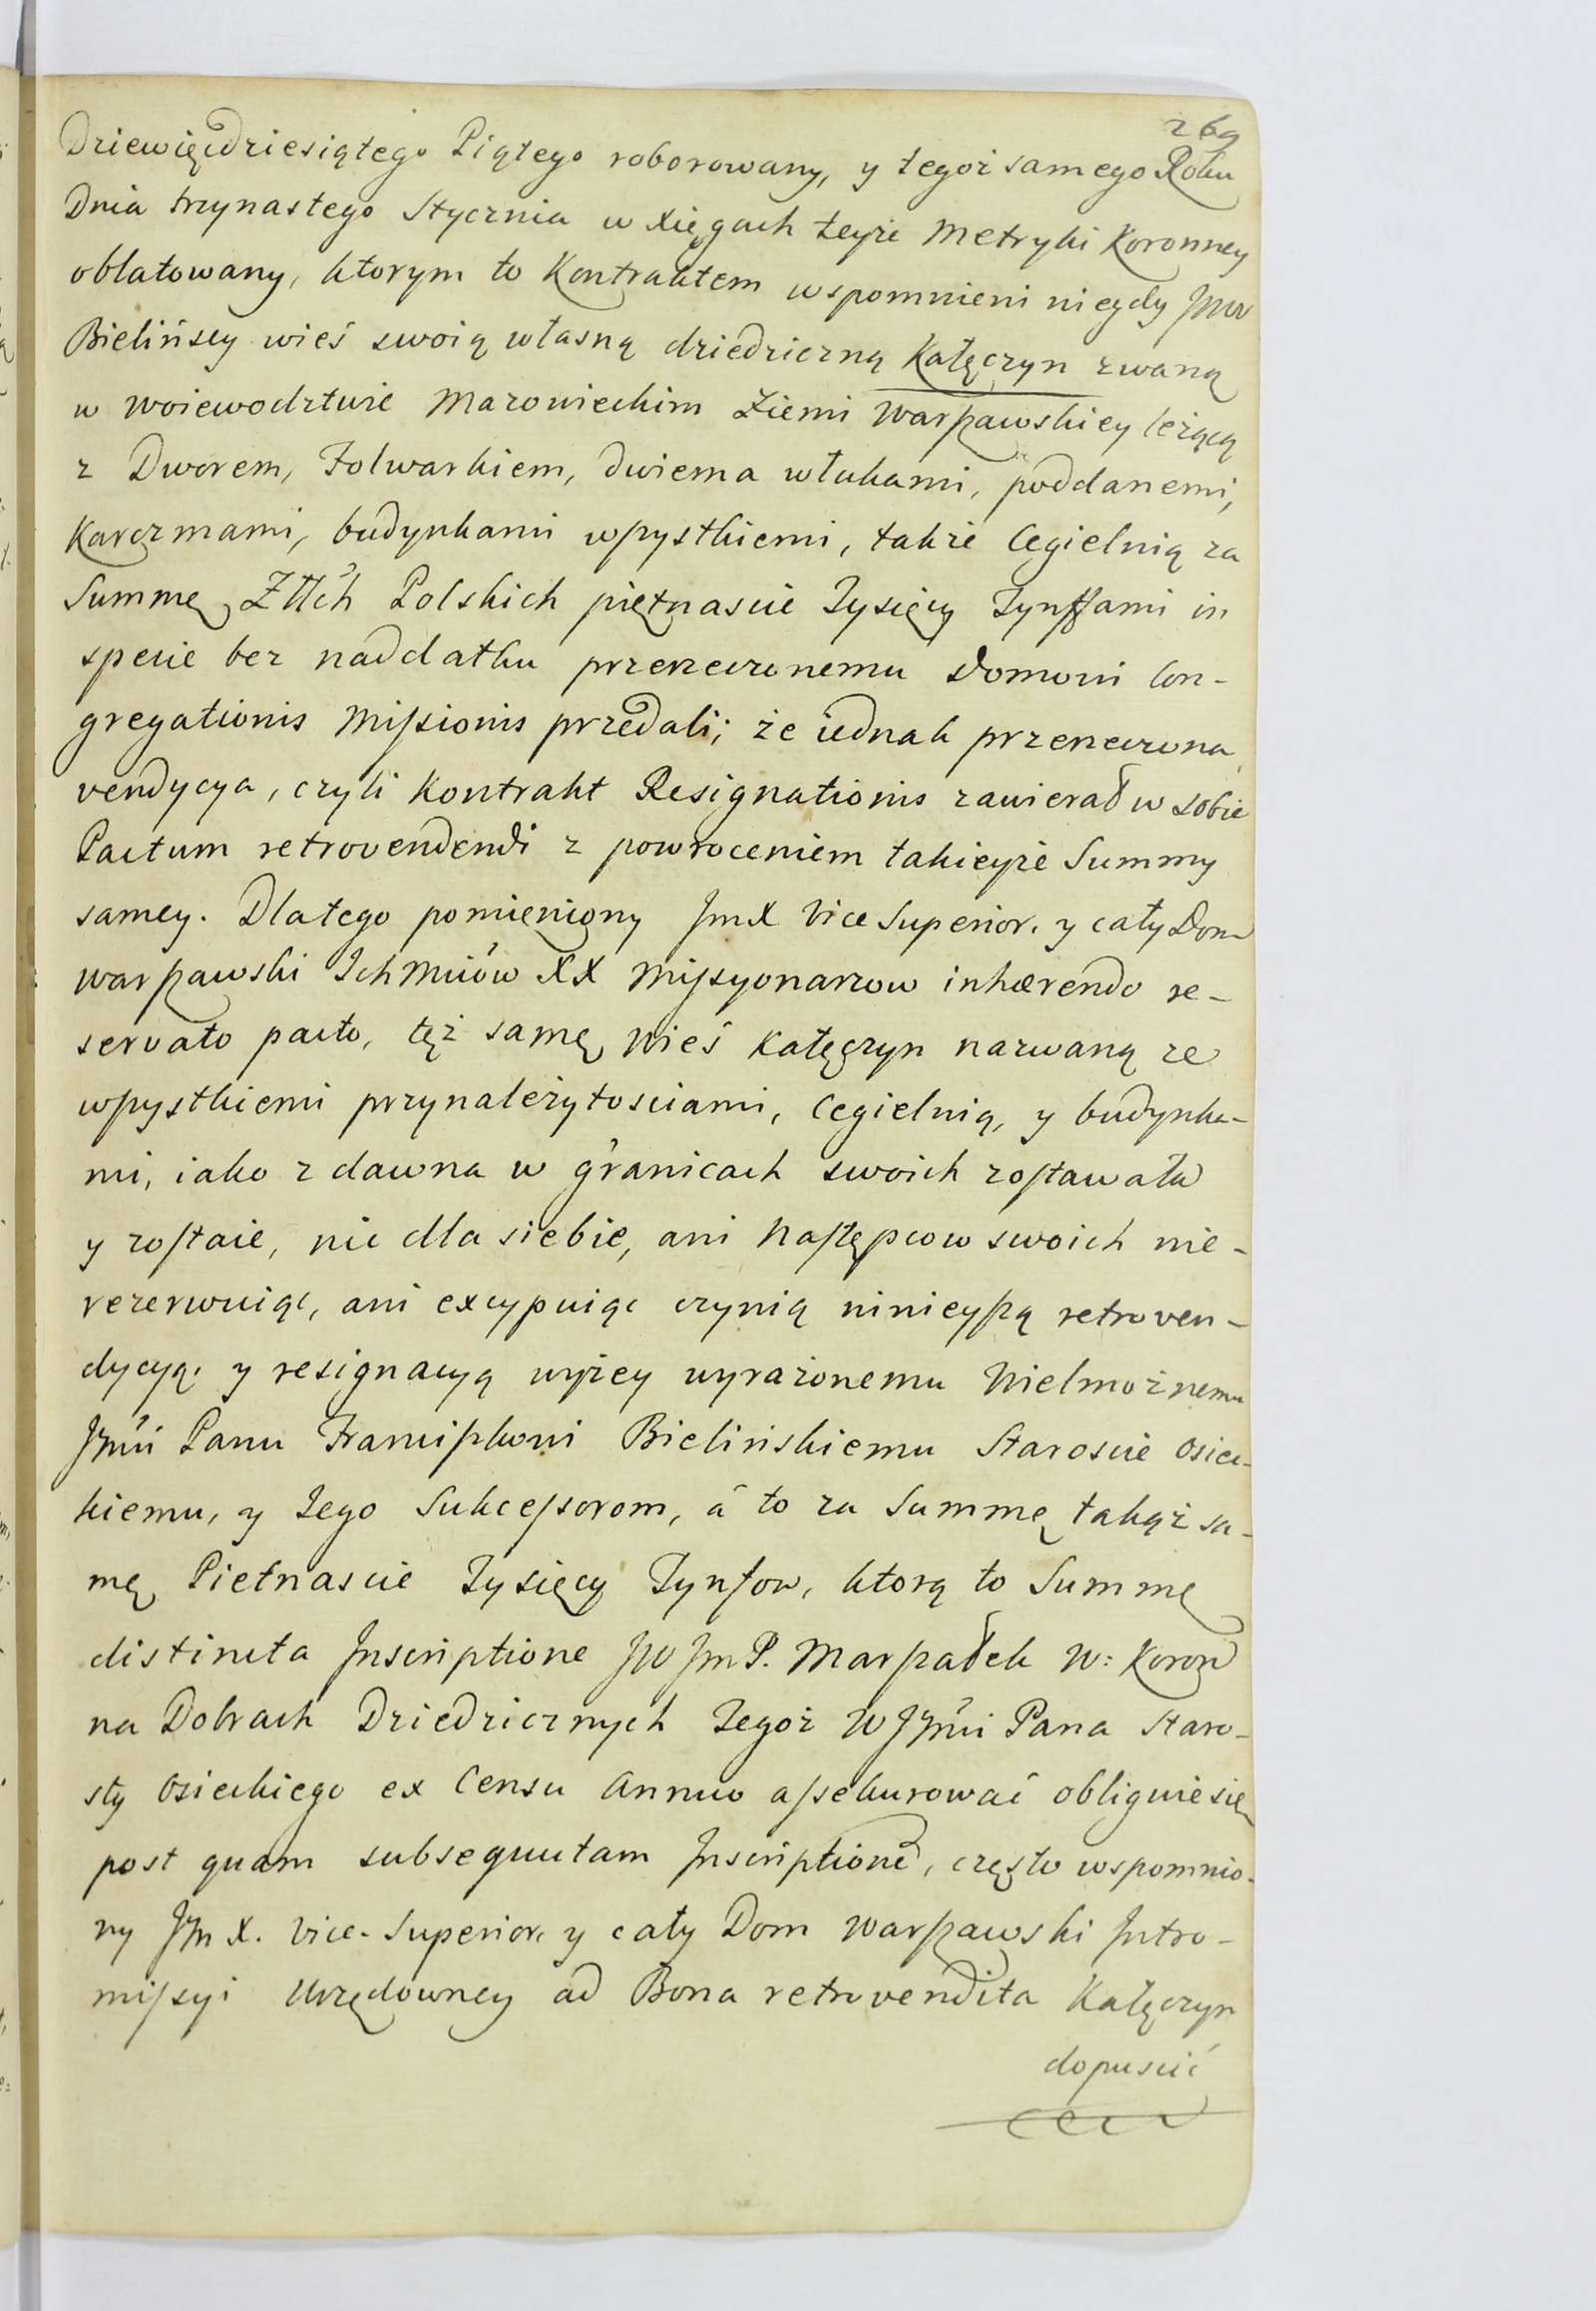 269
Dziewięcdziesiątego Piątego roborowany, y tegoż samego Roku
Dnia trzynastego Stycznia w Xięgach teyże Metryki Koronney
oblatowany, ktorym to Kontraktem wspomnieni niegdy
Bielińscy wieś swoią własną dziedziczną Kałęczyn zwaną
w Woiewodztwie Mazowieckim Ziemi Warszawskiey leżącą
z Dworem, Folwarkiem, dwiema włukami, poddanemi,
Karczmami, budynkami wszystkiemi, także Cegielnią za
Summę Złłch Polskich piętnascie Tysięcy Tynffami in
specie bez naddatku przerzeczonemu Domowi Con-
gregationis Missionis przedali; że iednak przerzeczona
vendycya, czyli Kontrakt Resignationis zawierał w sobie
Pactum retrovendendi z powroceniem takieyże Summy
samey. Dlatego pomieniony JmX Vice Superior. y cały Dom
Warszawski Ichmciów XX Missyonarzow inhærendo re-
servato pacto, tęż samę Wieś Kałęczyn nazwaną ze
wszystkiemi przynależytosciami, Cegielnią, y budynka-
mi, iako z dawna w granicach swoich zostawała
y zostaie, nic dla siebie, ani Następcow swoich nie-
rezerwuiąc, ani excypuiąc czynią ninieyszą retroven-
dycyą, y resignacyą wyżey wyrażonemu Wielmożnemu
Jmći Panu Franciszkowi Bielińskiemu Staroscie Osiec-
kiemu, y Jego Sukcessorom, á to za Summę takąż sa-
mę Pietnascie Tysięcy Tynfow, ktorą to Summę
distincta Inscriptione JW JmP. Marszałek W: Koron
na Dobrach Dziedzicznych Tegoż W Jmći Pana Staro-
sty Osieckiego ex Censu Annuo assekurować obliguie się
post quam subsequutam Inscriptioné, często wspomnio-
ny Jm X. Vice-Superior, y cały Dom Warszawski Intro-
missyi Urzędowney ad Bona retrovendita Kałęczyn
dopuscić